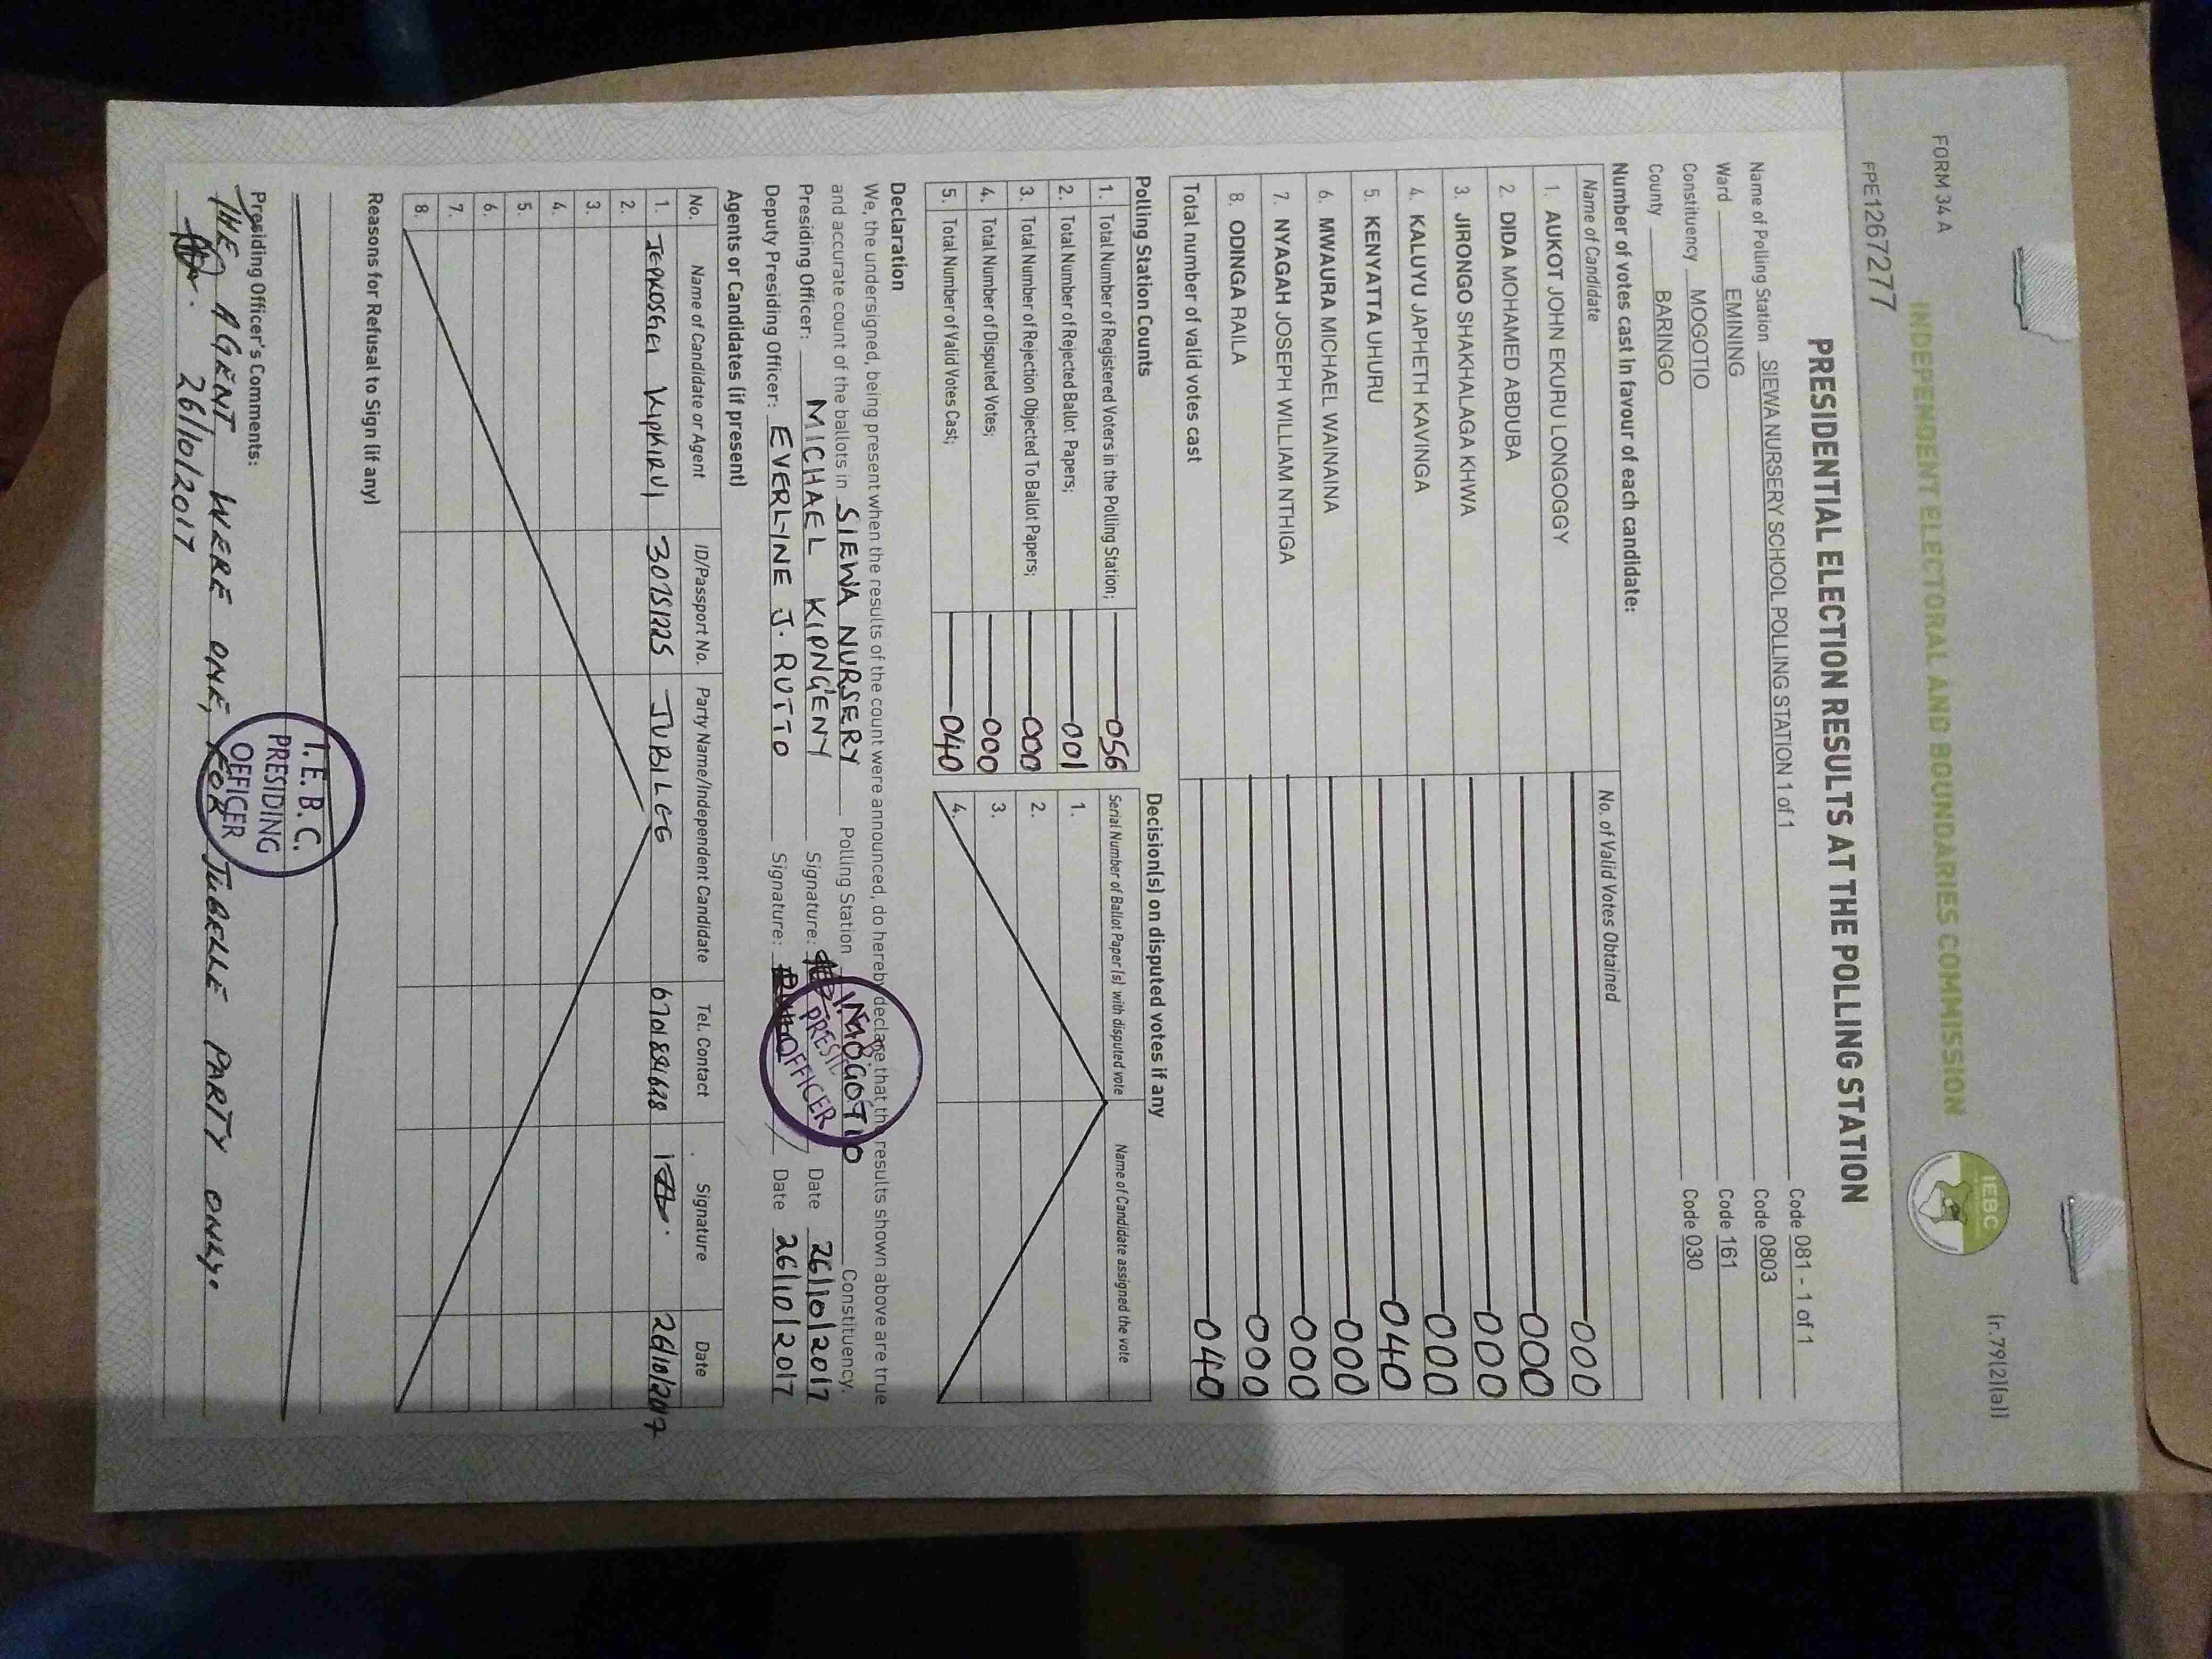 FORM 34 A
(r.79(2)(a))
INDEPENDENT ELECTORAL AND BOUNDARIES COMMISSION
IEBC
FPE1267277
PRESIDENTIAL ELECTION RESULTS AT THE POLLING STATION
Name of Polling Station SIEWA NURSERY SCHOOL POLLING STATION 1 of 1 Code 081 - 1 of 1
Ward EMINING Code 0803
Constituency MOGOTIO Code 161
County BARINGO Code 030
Number of votes cast in favour of each candidate:
Name of Candidate No. of Valid Votes Obtained
1. AUKOT JOHN EKURU LONGOGGY 000
2. DIDA MOHAMED ABDUBA 000
3. JIRONGO SHAKHALAGA KHWA 000
4. KALUYU JAPHETH KAVINGA 000
5. KENYATTA UHURU 040
6. MWAURA MICHAEL WAINAINA 000
7. NYAGAH JOSEPH WILLIAM NTHIGA 000
8. ODINGA RAILA 000
Total number of valid votes cast 040
Polling Station Counts
1. Total Number of Registered Voters in the Polling Station; 056
2. Total Number of Rejected Ballot Papers; 001
3. Total Number of Rejection Objected To Ballot Papers; 000
4. Total Number of Disputed Votes; 000
5. Total Number of Valid Votes Cast; 040
Decision(s) on disputed votes if any
Serial Number of Ballot Paper (s) with disputed vote Name of Candidate assigned the vote
1.
2.
3.
4.
Declaration
We, the undersigned, being present when the results of the count were announced, do hereby declare that the results shown above are true
and accurate count of the ballots in SIEWA NURSERY Polling Station MOGOTIO Constituency.
Presiding Officer: MICHAEL KIPNG'ENY Signature: Date 26/10/2017
Deputy Presiding Officer: EVERLINE J. RUTTO Signature: Date 26/10/2017
PRESID
OFFICER
Agents or Candidates (if present)
No. Name of Candidate or Agent ID/Passport No. Party Name/Independent Candidate Tel. Contact Signature Date
1. JEPKOSGEI KIPKIRUI 30751225 JUBILEE 26/10/2017
2.
3.
4.
5.
6.
7.
8.
Reasons for Refusal to Sign (if any)
I.E.B.C.
PRESIDING
OFFICER
Presiding Officer's Comments:
THE AGENT WERE ONE, FOR JUBELLE PARTY ONLY.
26/10/2017